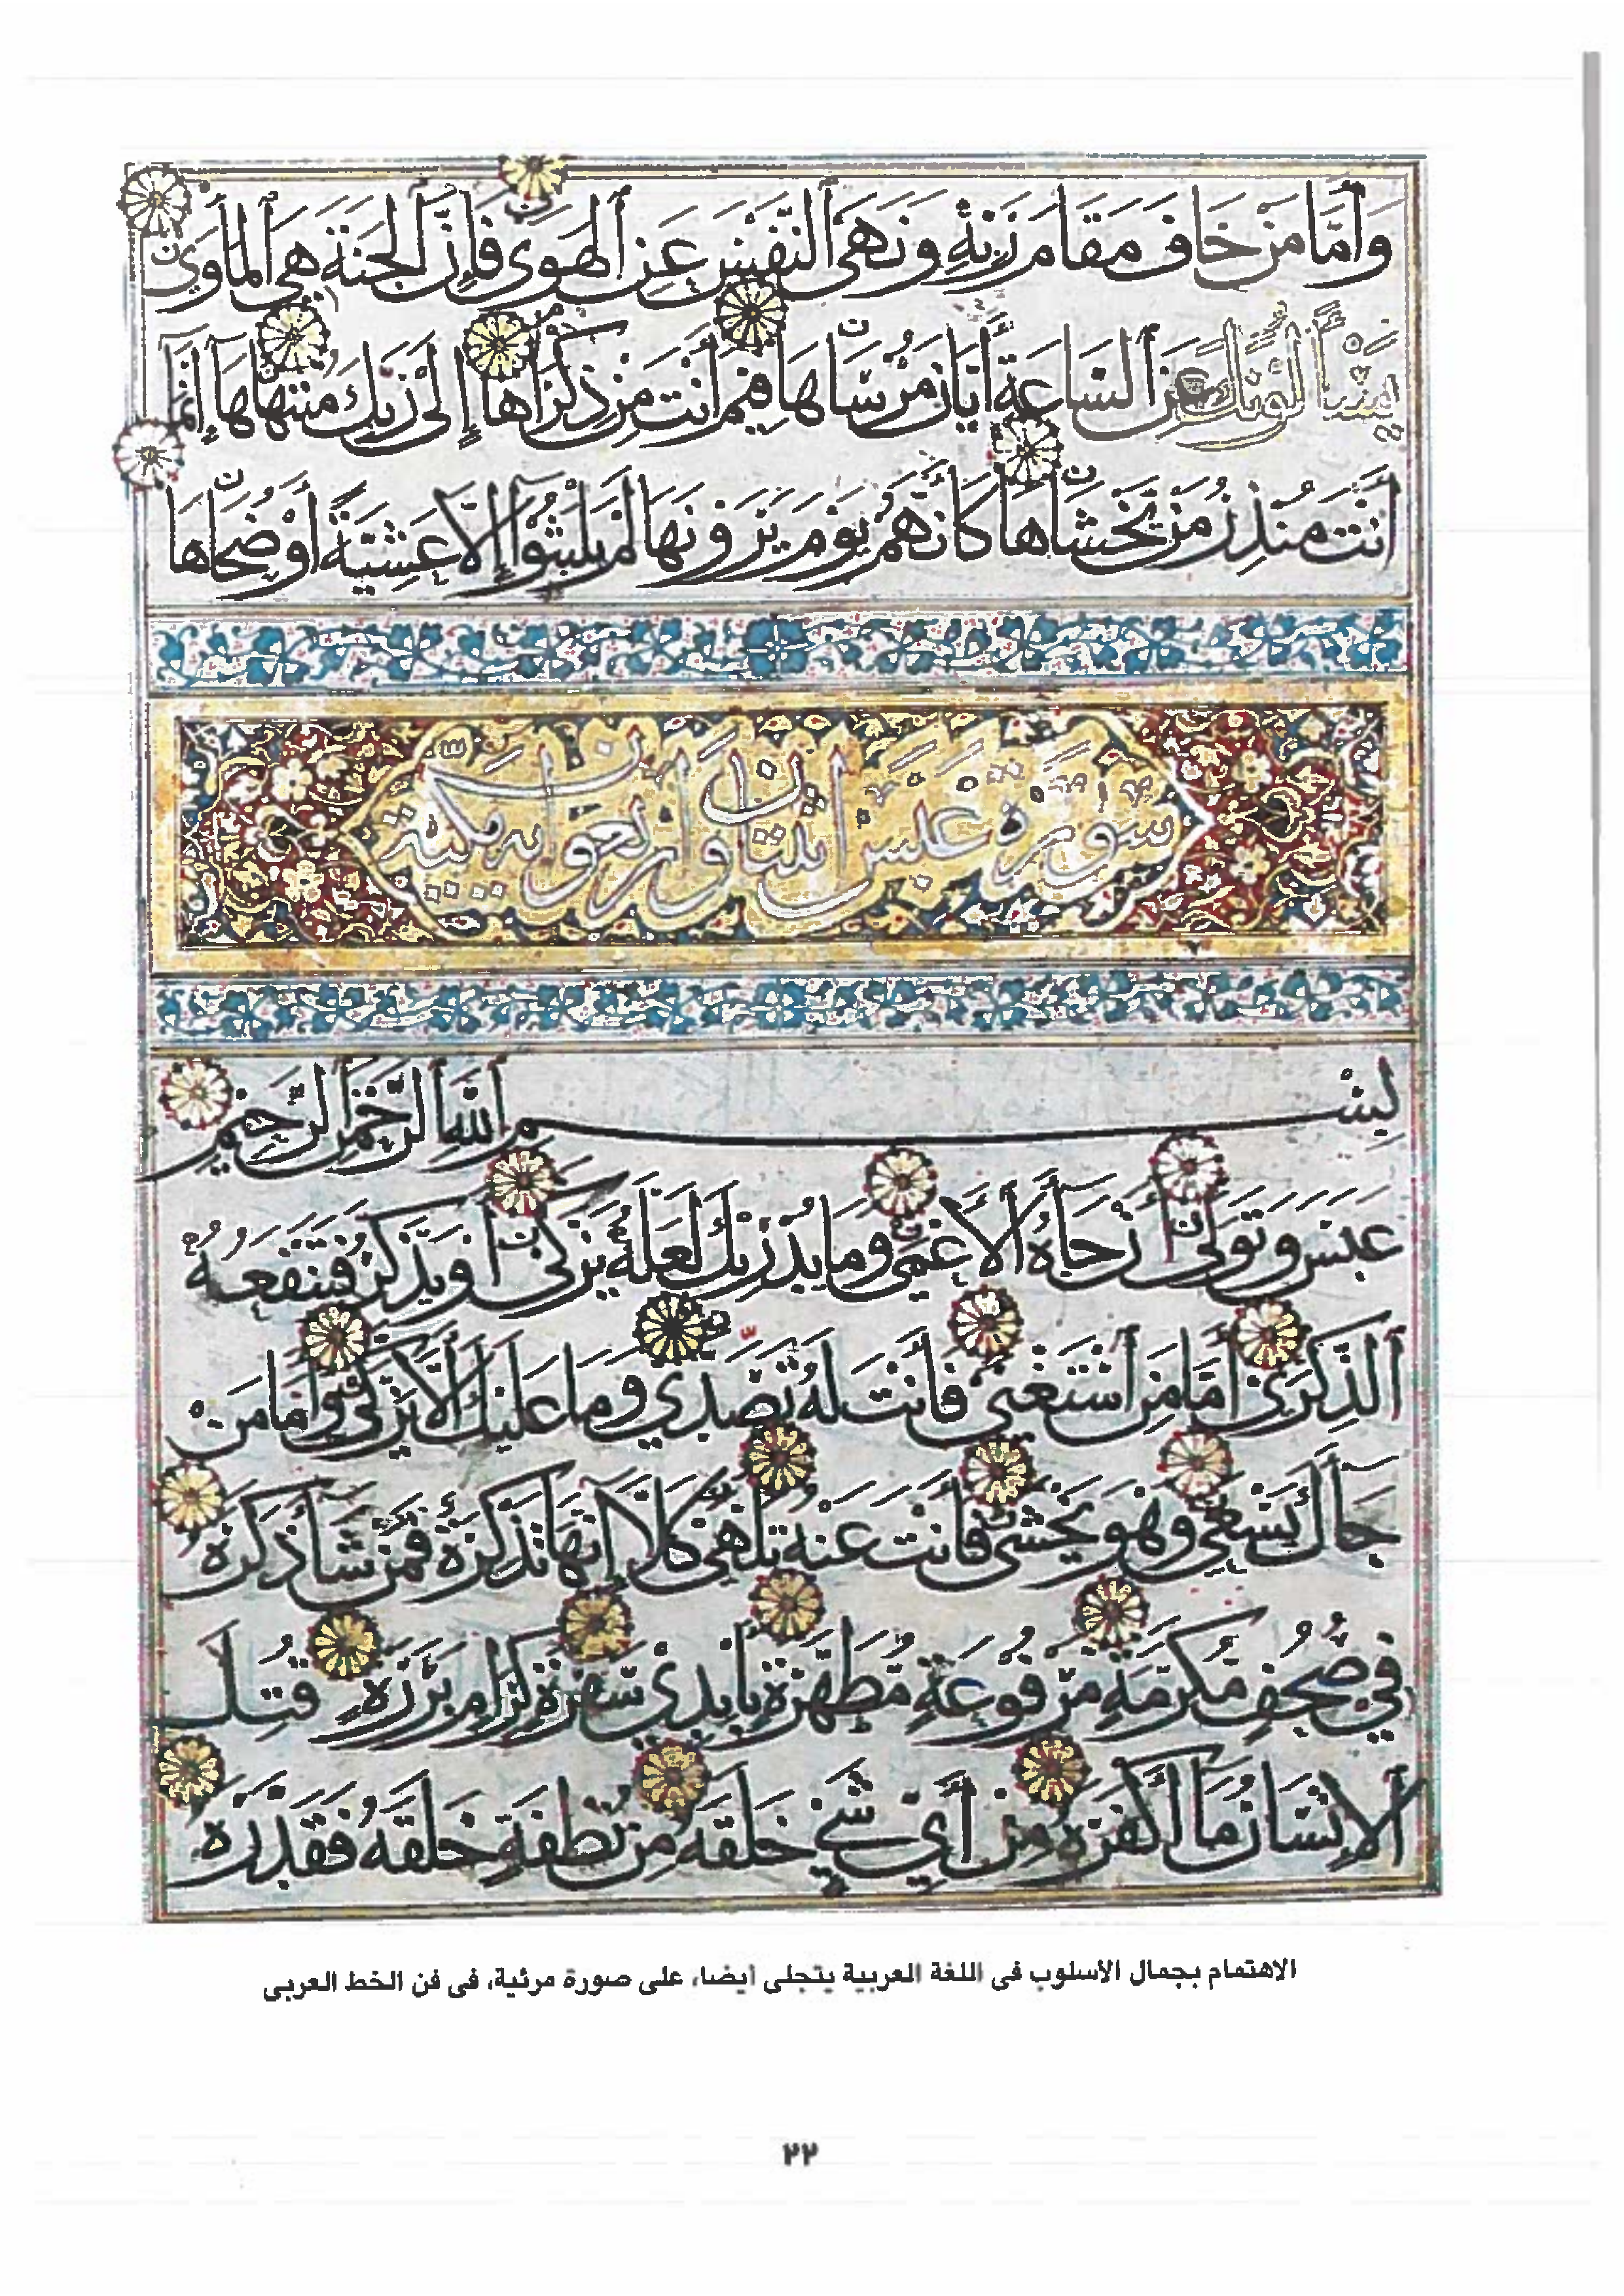 وَأَمَّا مَنْ خَافَ مَقَامَ رَبِّهِ وَنَهَى ٱلنَّفْسَ عَنِ ٱلْهَوَى فَإِنَّ ٱلْجَنَّةَ هِيَ ٱلْمَأْوَى
يَسْأَلُونَكَ عَنِ ٱلسَّاعَةِ أَيَّانَ مُرْسَاهَا فِيمَ أَنْتَ مِنْ ذِكْرَاهَا إِلَى رَبِّكَ مُنْتَهَاهَا إِنَّمَا
أَنْتَ مُنْذِرُ مَنْ يَخْشَاهَا كَأَنَّهُمْ يَوْمَ يَرَوْنَهَا لَمْ يَلْبَثُوا إِلَّا عَشِيَّةً أَوْ ضُحَاهَا
سورة عبس اثنتان واربعون اية مكية
بِسْمِ ٱللَّهِ ٱلرَّحْمَنِ ٱلرَّحِيمِ
عَبَسَ وَتَوَلَّى أَنْ جَاءَهُ ٱلْأَعْمَى وَمَا يُدْرِيكَ لَعَلَّهُ يَزَّكَّى أَوْ يَذَّكَّرُ فَتَنْفَعَهُ
ٱلذِّكْرَى أَمَّا مَنِ ٱسْتَغْنَى فَأَنْتَ لَهُ تَصَدَّى وَمَا عَلَيْكَ أَلَّا يَزَّكَّى وَأَمَّا مَنْ
جَاءَكَ يَسْعَى وَهُوَ يَخْشَى فَأَنْتَ عَنْهُ تَلَهَّى كَلَّا إِنَّهَا تَذْكِرَةٌ فَمَنْ شَاءَ ذَكَرَهُ
فِي صُحُفٍ مُكَرَّمَةٍ مَرْفُوعَةٍ مُطَهَّرَةٍ بِأَيْدِي سَفَرَةٍ كِرَامٍ بَرَرَةٍ قُتِلَ
ٱلْإِنْسَانُ مَا أَكْفَرَهُ مِنْ أَيِّ شَيْءٍ خَلَقَهُ مِنْ نُطْفَةٍ خَلَقَهُ فَقَدَّرَهُ
الاهتمام بجمال الاسلوب فى اللغة العربية يتجلى أيضا، على صورة مرئية، فى فن الخط العربى
٢٢